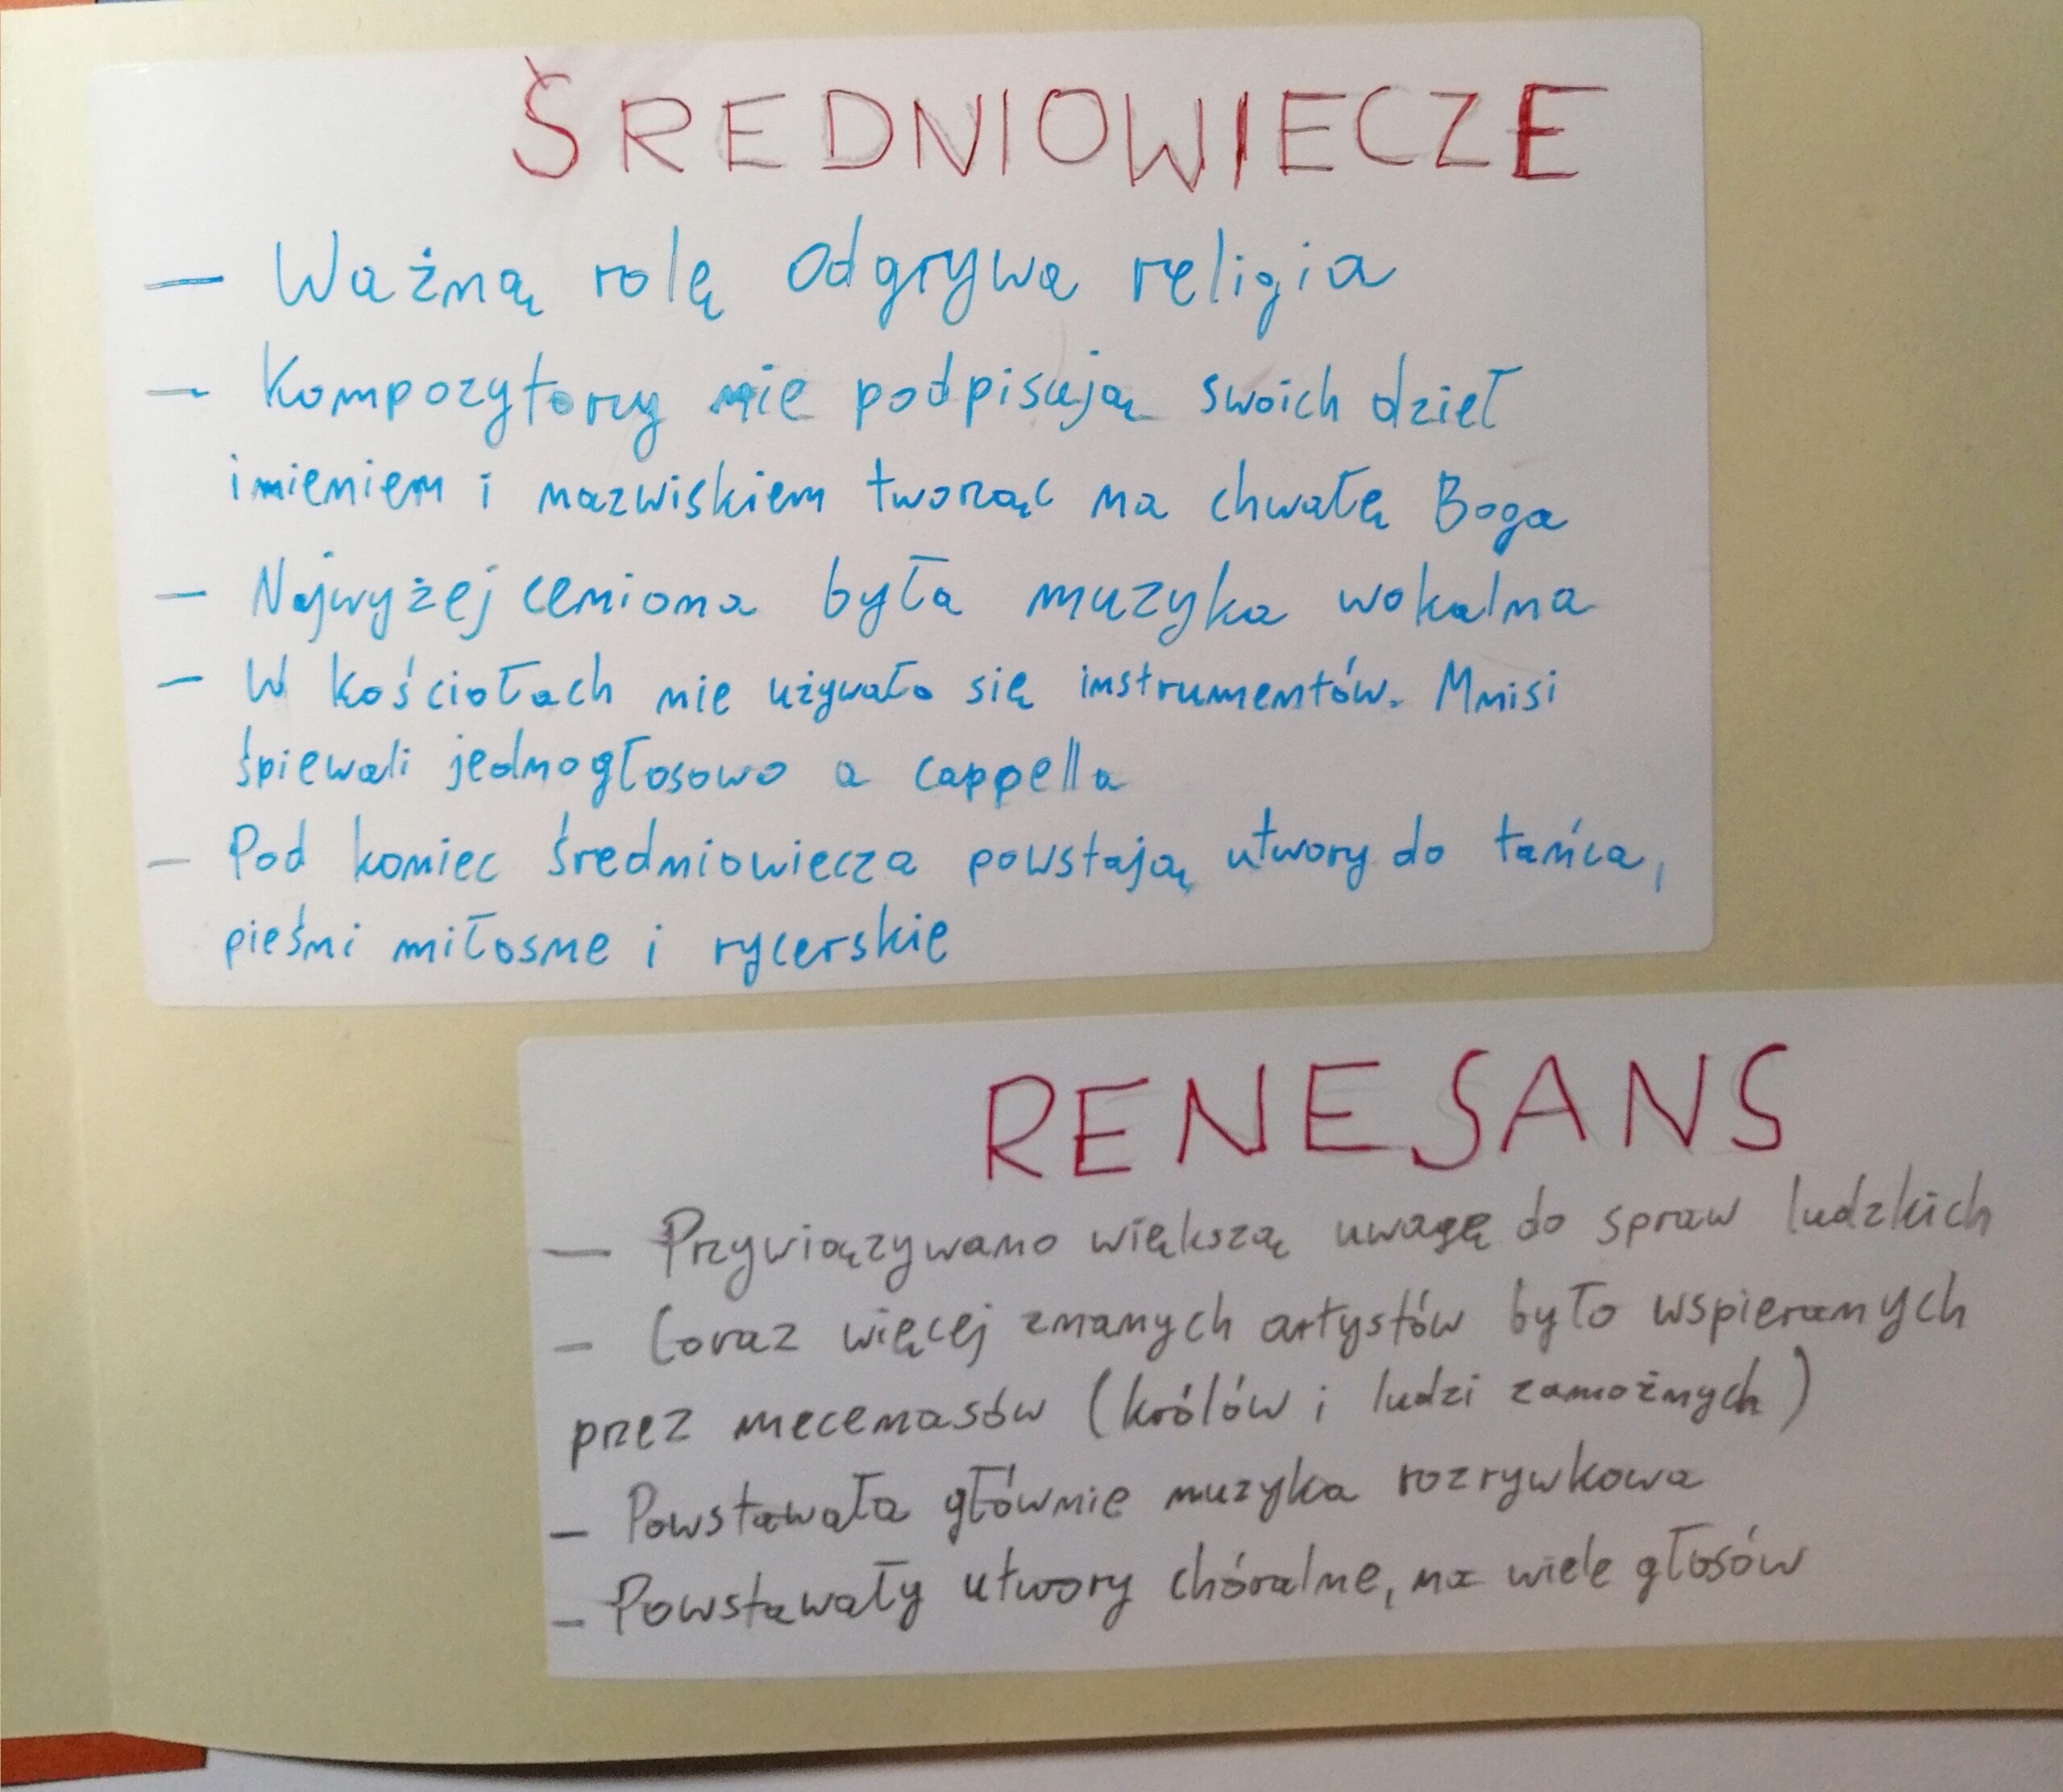 ŚREDNIOWIECZE
— Ważną rolę odgrywa religia
— Kompozytorzy nie podpisują swoich dzieł
imieniem i nazwiskiem tworząc na chwałę Boga
— Najwyżej ceniona była muzyka wokalna
— W kościołach nie używało się instrumentów. Mnisi
śpiewali jednogłosowo a cappella
— Pod koniec średniowiecza powstają utwory do tańca,
pieśni miłosne i rycerskie
RENESANS
— Przywiązywano większą uwagę do spraw ludzkich
— Coraz więcej znanych artystów było wspieranych
przez mecenasów (królów i ludzi zamożnych)
— Powstawała głównie muzyka rozrywkowa
— Powstawały utwory chóralne, na wiele głosów